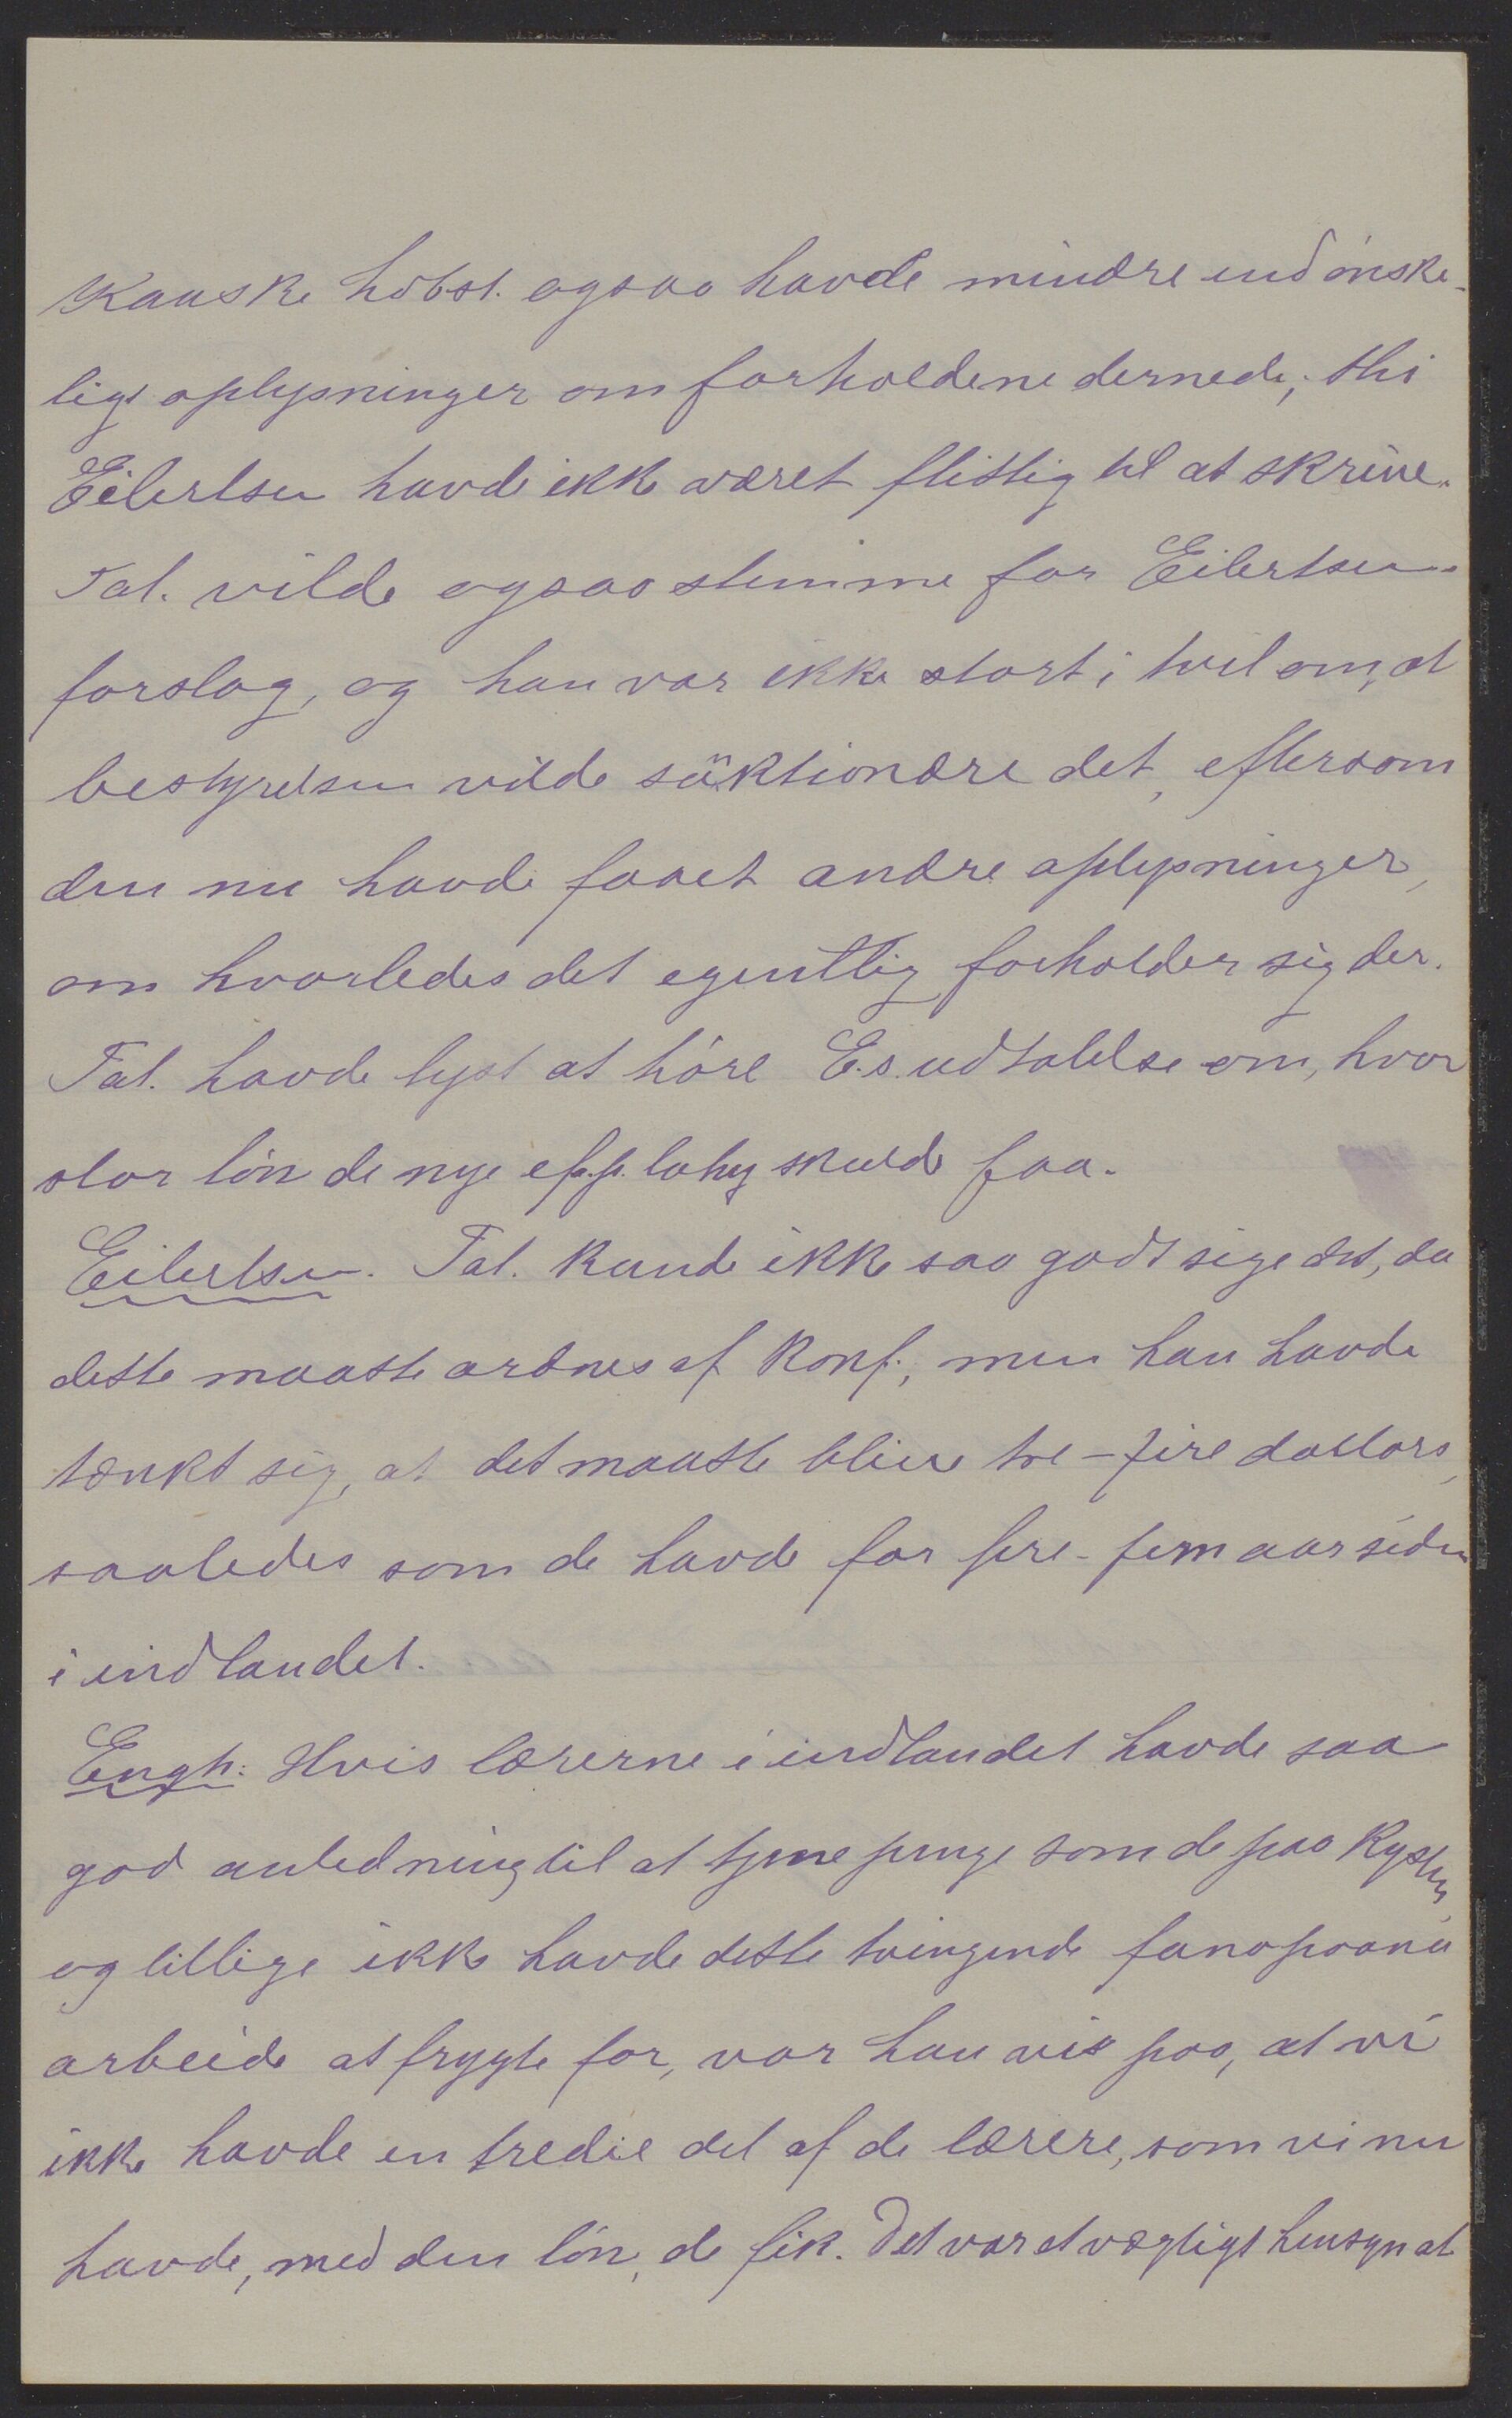 Kanske hdbst. ogsaa havde mindre end ønske-
ligt oplysninger om forholdene dernede; thi
Eilertsen havde ikke været flittig til at skrive.
Tal. vilde ogsaa stemme for Eilertsens
forslag, og han var ikke stort i tvil om, at
bestyrelsen vilde sanktionere det, eftersom
den nu havde faaet andre oplysninger,
om hvorledes det egentlig forholder sig der.
Tal. havde lyst at høre E.s. udtalelse om, hvor
stor løn de nye ef.p. lahy skulde faa.
Eilertsen. Tal. kunde ikke saa godt sige det, da
dette maatte ordnes af Konf., men han havde
tænkt sig, at det maatte blive tre-fire dollars,
saaledes som de havde for fire-fem aar siden
i indlandet.
Engh: Hvis lærerne i indlandet havde saa
god anledning til at tjene penge som de paa Kysten,
og tillige ikke havde dette tvingende fanopoana
arbeide at frygte for, var han vis paa, at vi
ikke havde en tredie del af de lærere, som vi nu
havde, med den løn, de fik. Det var et vægtigt hensyn at